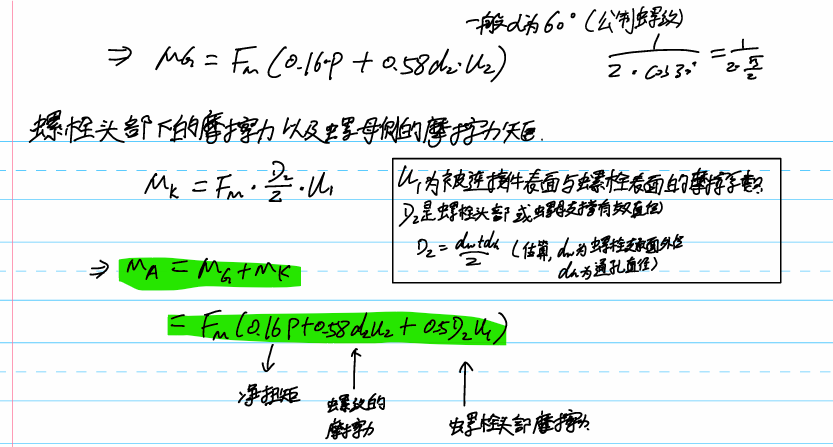 一般α为60°(公制螺纹)
⇒ M_G = F_M (0.16·P + 0.58d₂·U₂)
1/(2·cos30°) = 1/(2·√3/2)
螺栓头部下的摩擦力以及螺母侧的摩擦力矩.
M_K = F_M · D₂/2 · U₁
U₁为被连接件表面与螺栓表面上的摩擦系数.
D₂是螺栓头部或螺母支撑有效直径)
D₂ = (dw+dh)/2 (估算, dw为螺栓支承面外径
dh为通孔直径)
⇒ M_A = M_G + M_K
= F_M (0.16P + 0.58d₂U₂ + 0.5D₂U₁)
净扭矩
螺纹的
摩擦力
螺栓头部摩擦力